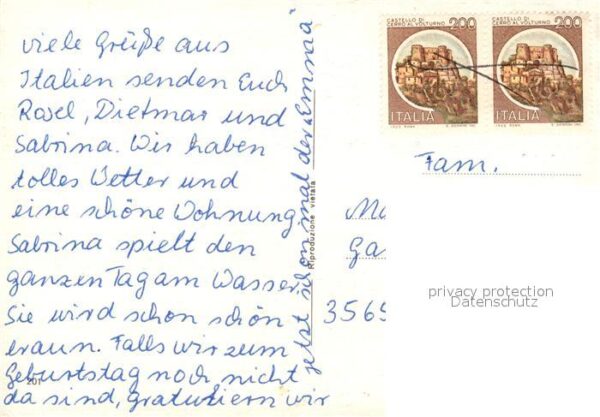 viele Grüße aus
Italien senden Euch
Rosel, Dietmar und
Sabrina. Wir haben
tolles Wetter und
eine schöne Wohnung.
Sabrina spielt den
ganzen Tag am Wasser.
Sie wird schon schön
braun. Falls wir zum
Geburtstag noch nicht
da sind, gratulieren wir
jetzt schon mal der Emma
201
Riproduzione vietata
CASTELLO DI
CERRO AL VOLTURNO 200
ITALIA
CASTELLO DI
CERRO AL VOLTURNO 200
ITALIA
Fam.
Ma
Ga
3569
privacy protection
Datenschutz